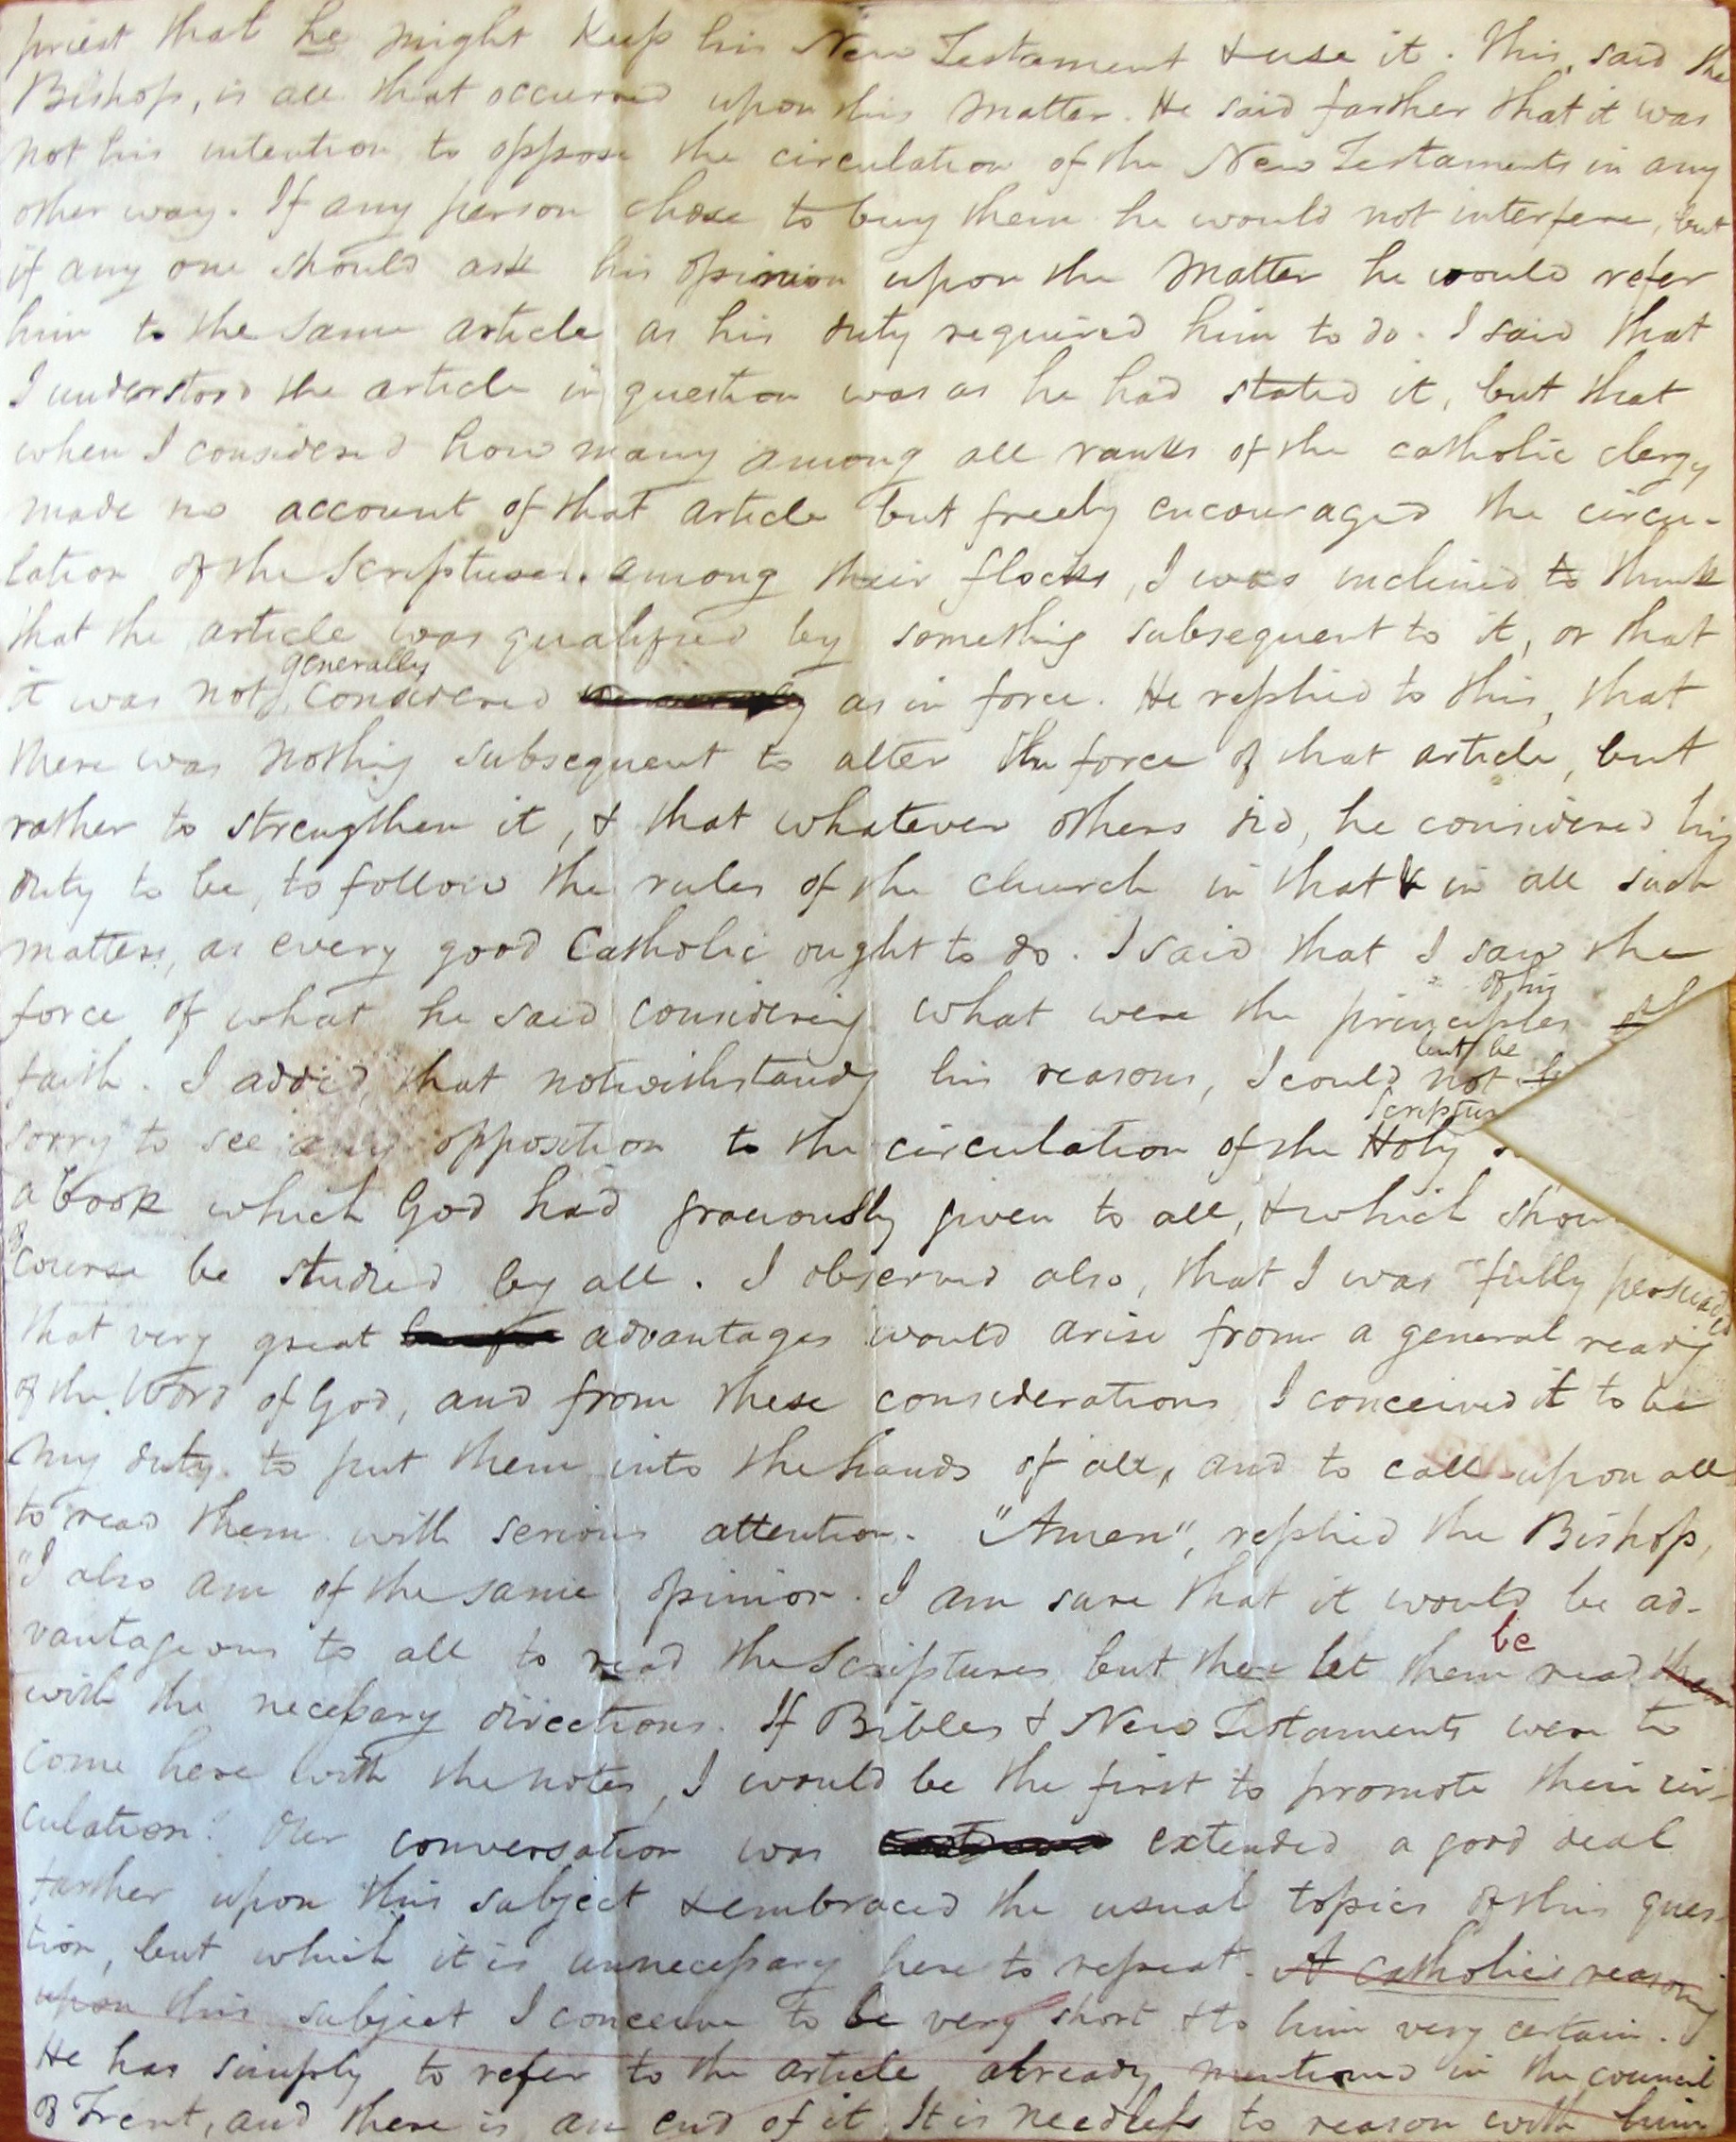 priest that he might keep his New Testament & use it. This, said the
Bishop, is all that occurred upon this matter. He said farther that it was
not his intention to oppose the circulation of the New Testaments in any
other way. If any person chose to buy them he would not interfere, but
if any one should ask his opinion upon the matter he would refer
him to the same article as his duty required him to do. I said that
I understood the article in question was as he had stated it, but that
when I considered how many among all ranks of the catholic clergy
made no account of that article but freely encouraged the circu-
lation of the Scriptures among their flocks, I was inclined to think
that the article was qualified by something subsequent to it, or that
generally
it was not considered as in force. He replied to this, that
there was nothing subsequent to alter the force of that article, but
rather to strengthen it, & that whatever others did, he considered his
duty to be, to follow the rules of the church in that & in all such
matters, as every good Catholic ought to do. I said that I saw the
of his
force of what he said considering what were the principles
but be
faith. I added, that notwithstandg his reasons, I could not
Scriptur
sorry to see any opposition to the circulation of the Holy
a book which God had graciously given to all, & which shou
of
course be studied by all. I observed also, that I was fully persuaded
that very great advantages would arise from a general readg
of the Word of God, and from these considerations I conceived it to be
my duty to put them into the hands of all, and to call upon all
to read them with serious attention. "Amen", replied the Bishop,
"I also am of the same opinion. I am sure that it would be ad-
be
vantageous to all to read the Scriptures but then let them read them
with the necessary directions. If Bibles & New Testaments were to
come here with the notes, I would be the first to promote their cir-
culation." Our conversation was extended a good deal
farther upon this subject & embraced the usual topics of this ques-
tion, but which it is unnecessary here to repeat. A catholic's reasoning
upon this subject I conceive to be very short & to him very certain.
He has simply to refer to the article already mentioned in the council
of Trent, and there is an end of it. It is needless to reason with him